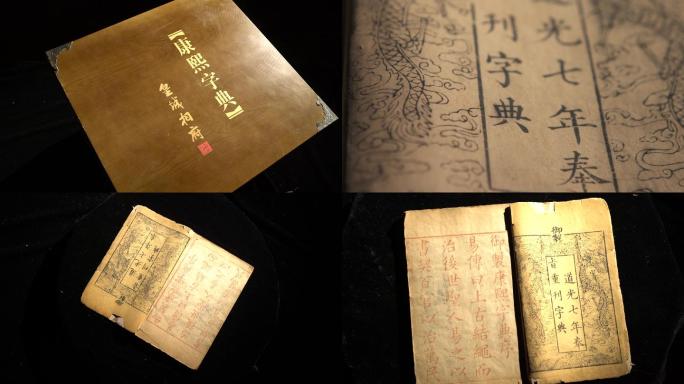 【康熙字典】
皇城相府
道光七年奉
刊字典
御製
道光七年奉
重刊字典
御製康熙字典序
易傳曰上古結繩而
治後世聖人易之以
書契百官以治萬民